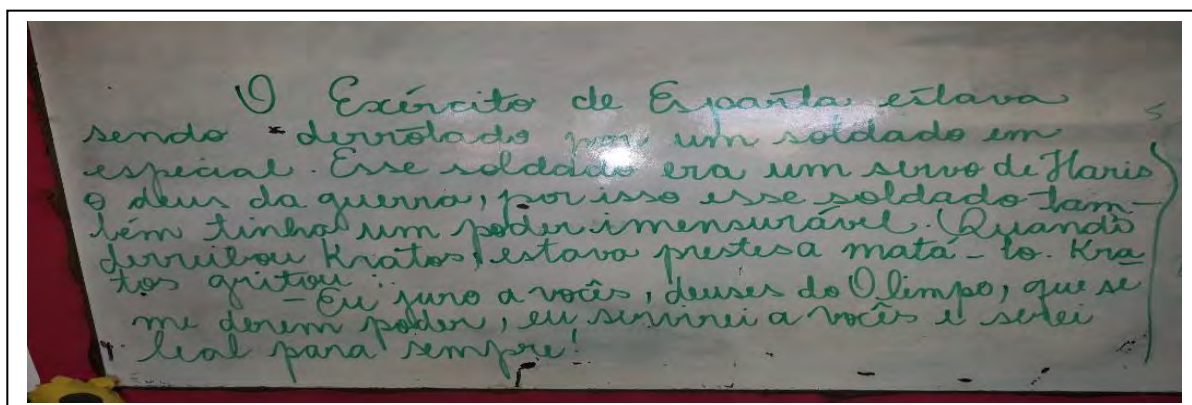 O Exército de Esparta estava
sendo derrotado por um soldado em
especial. Esse soldado era um servo de Haris
o deus da guerra, por isso esse soldado tam-
bém tinha um poder imensurável. Quando
derrubou Kratos, estava prestes a matá-lo. Kra
tos gritou:
-Eu juro a vocês, deuses do Olimpo, que se
me derem poder, eu servirei a vocês e serei
leal para sempre!